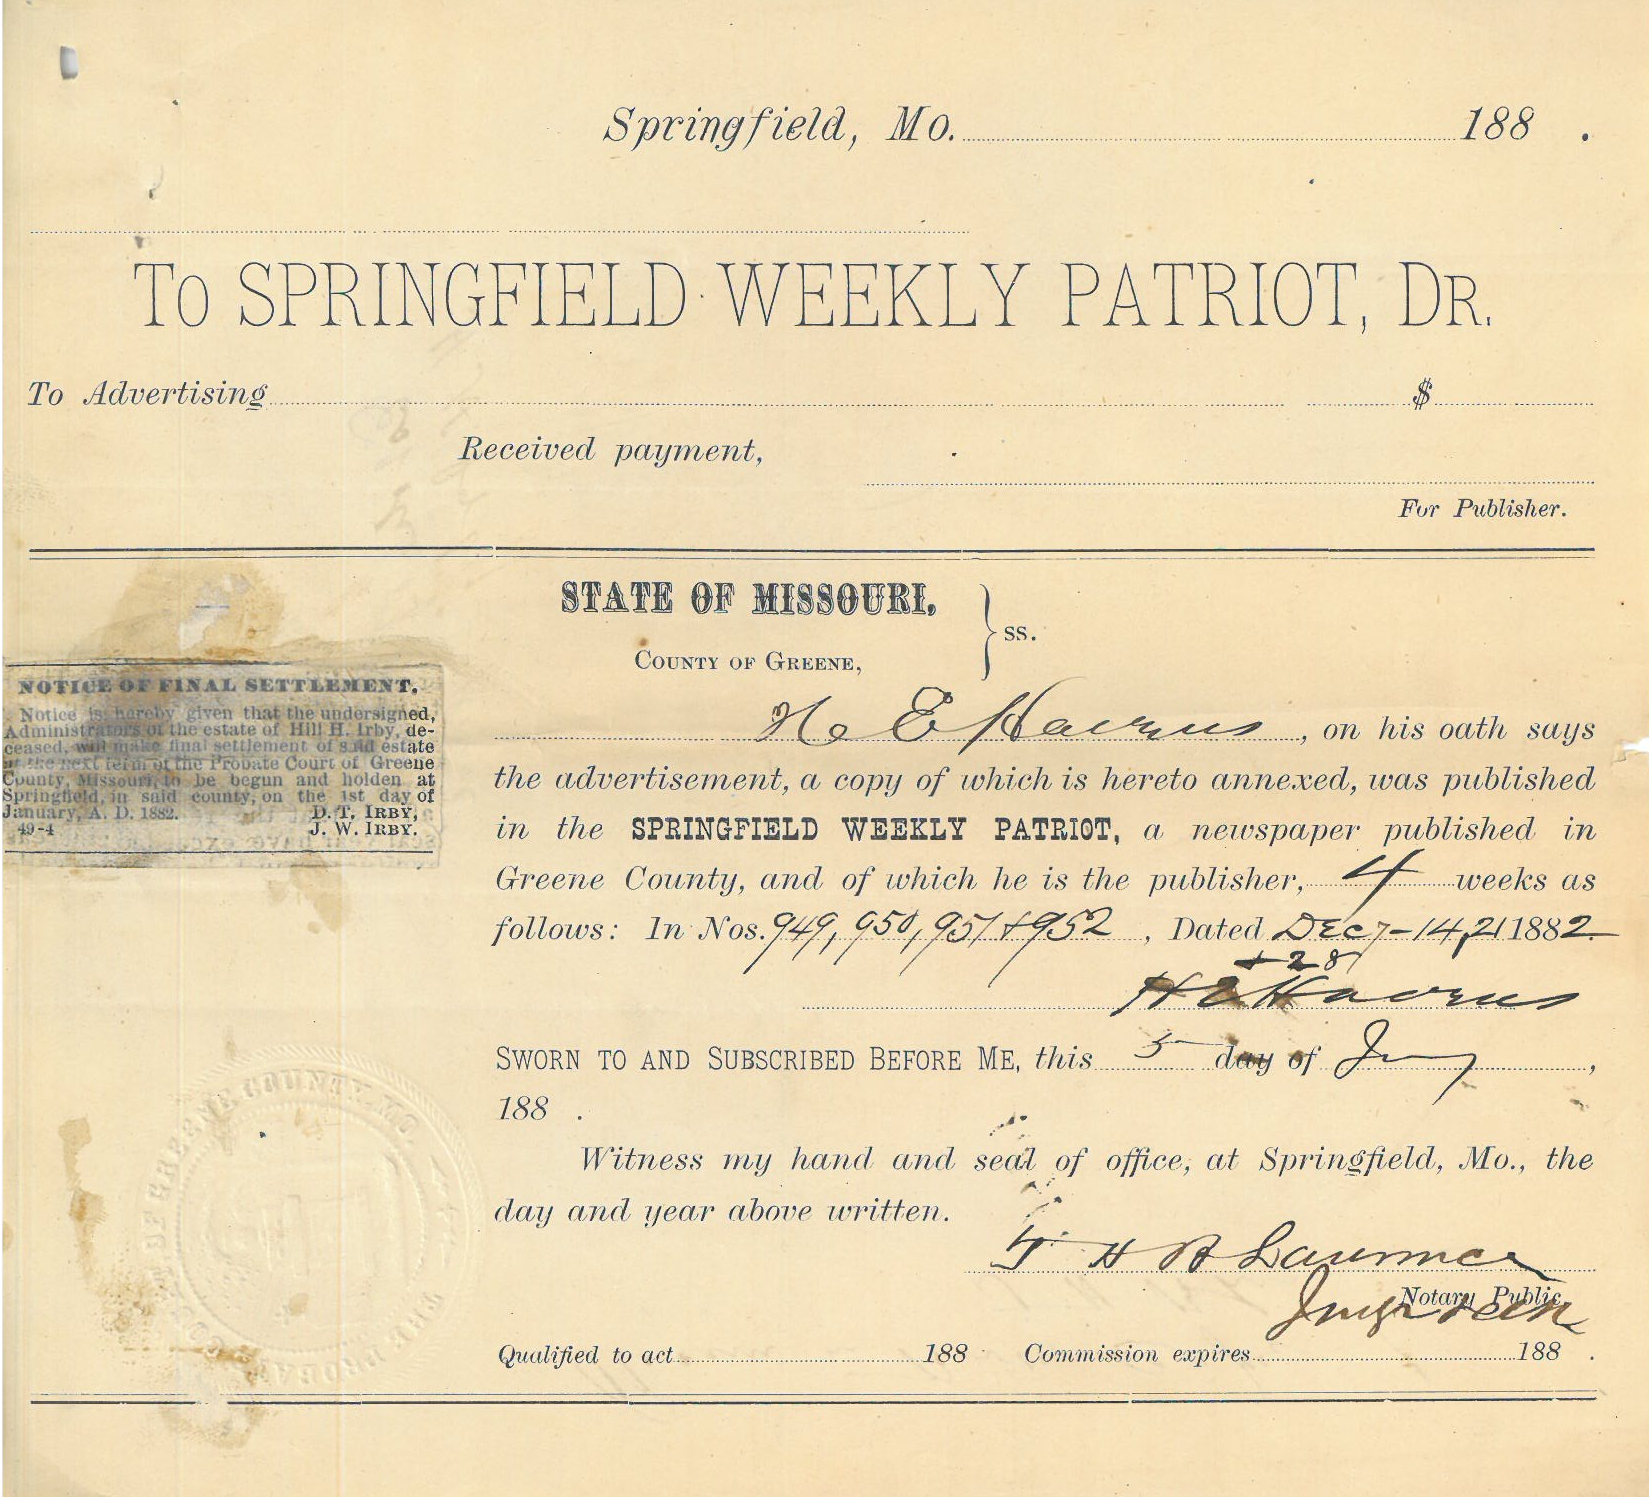 Springfield, Mo. 188 .
To SPRINGFIELD WEEKLY PATRIOT, Dr.
To Advertising $
Received payment,
For Publisher.
STATE OF MISSOURI,
County of Greene, } ss.
NOTICE OF FINAL SETTLEMENT.
Notice is hereby given that the undersigned,
Administrators of the estate of Hill H. Irby, de-
ceased, will make final settlement of said estate
at the next term of the Probate Court of Greene
County, Missouri, to be begun and holden at
Springfield, in said county, on the 1st day of
January, A. D. 1882. D. T. Irby,
49-4 J. W. Irby.
H E Havens, on his oath says
the advertisement, a copy of which is hereto annexed, was published
in the SPRINGFIELD WEEKLY PATRIOT, a newspaper published in
Greene County, and of which he is the publisher, 4 weeks as
follows: In Nos. 949, 950, 951 + 952, Dated Dec 7-14, 21 1882.
+ 28
H E Havens
Sworn to and Subscribed Before Me, this 5 day of Jny,
188 .
Witness my hand and seal of office, at Springfield, Mo., the
day and year above written.
H B Lawrence
Notary Public,
Qualified to act 188 Commission expires 188 .
GREENE COUNTY, MO.